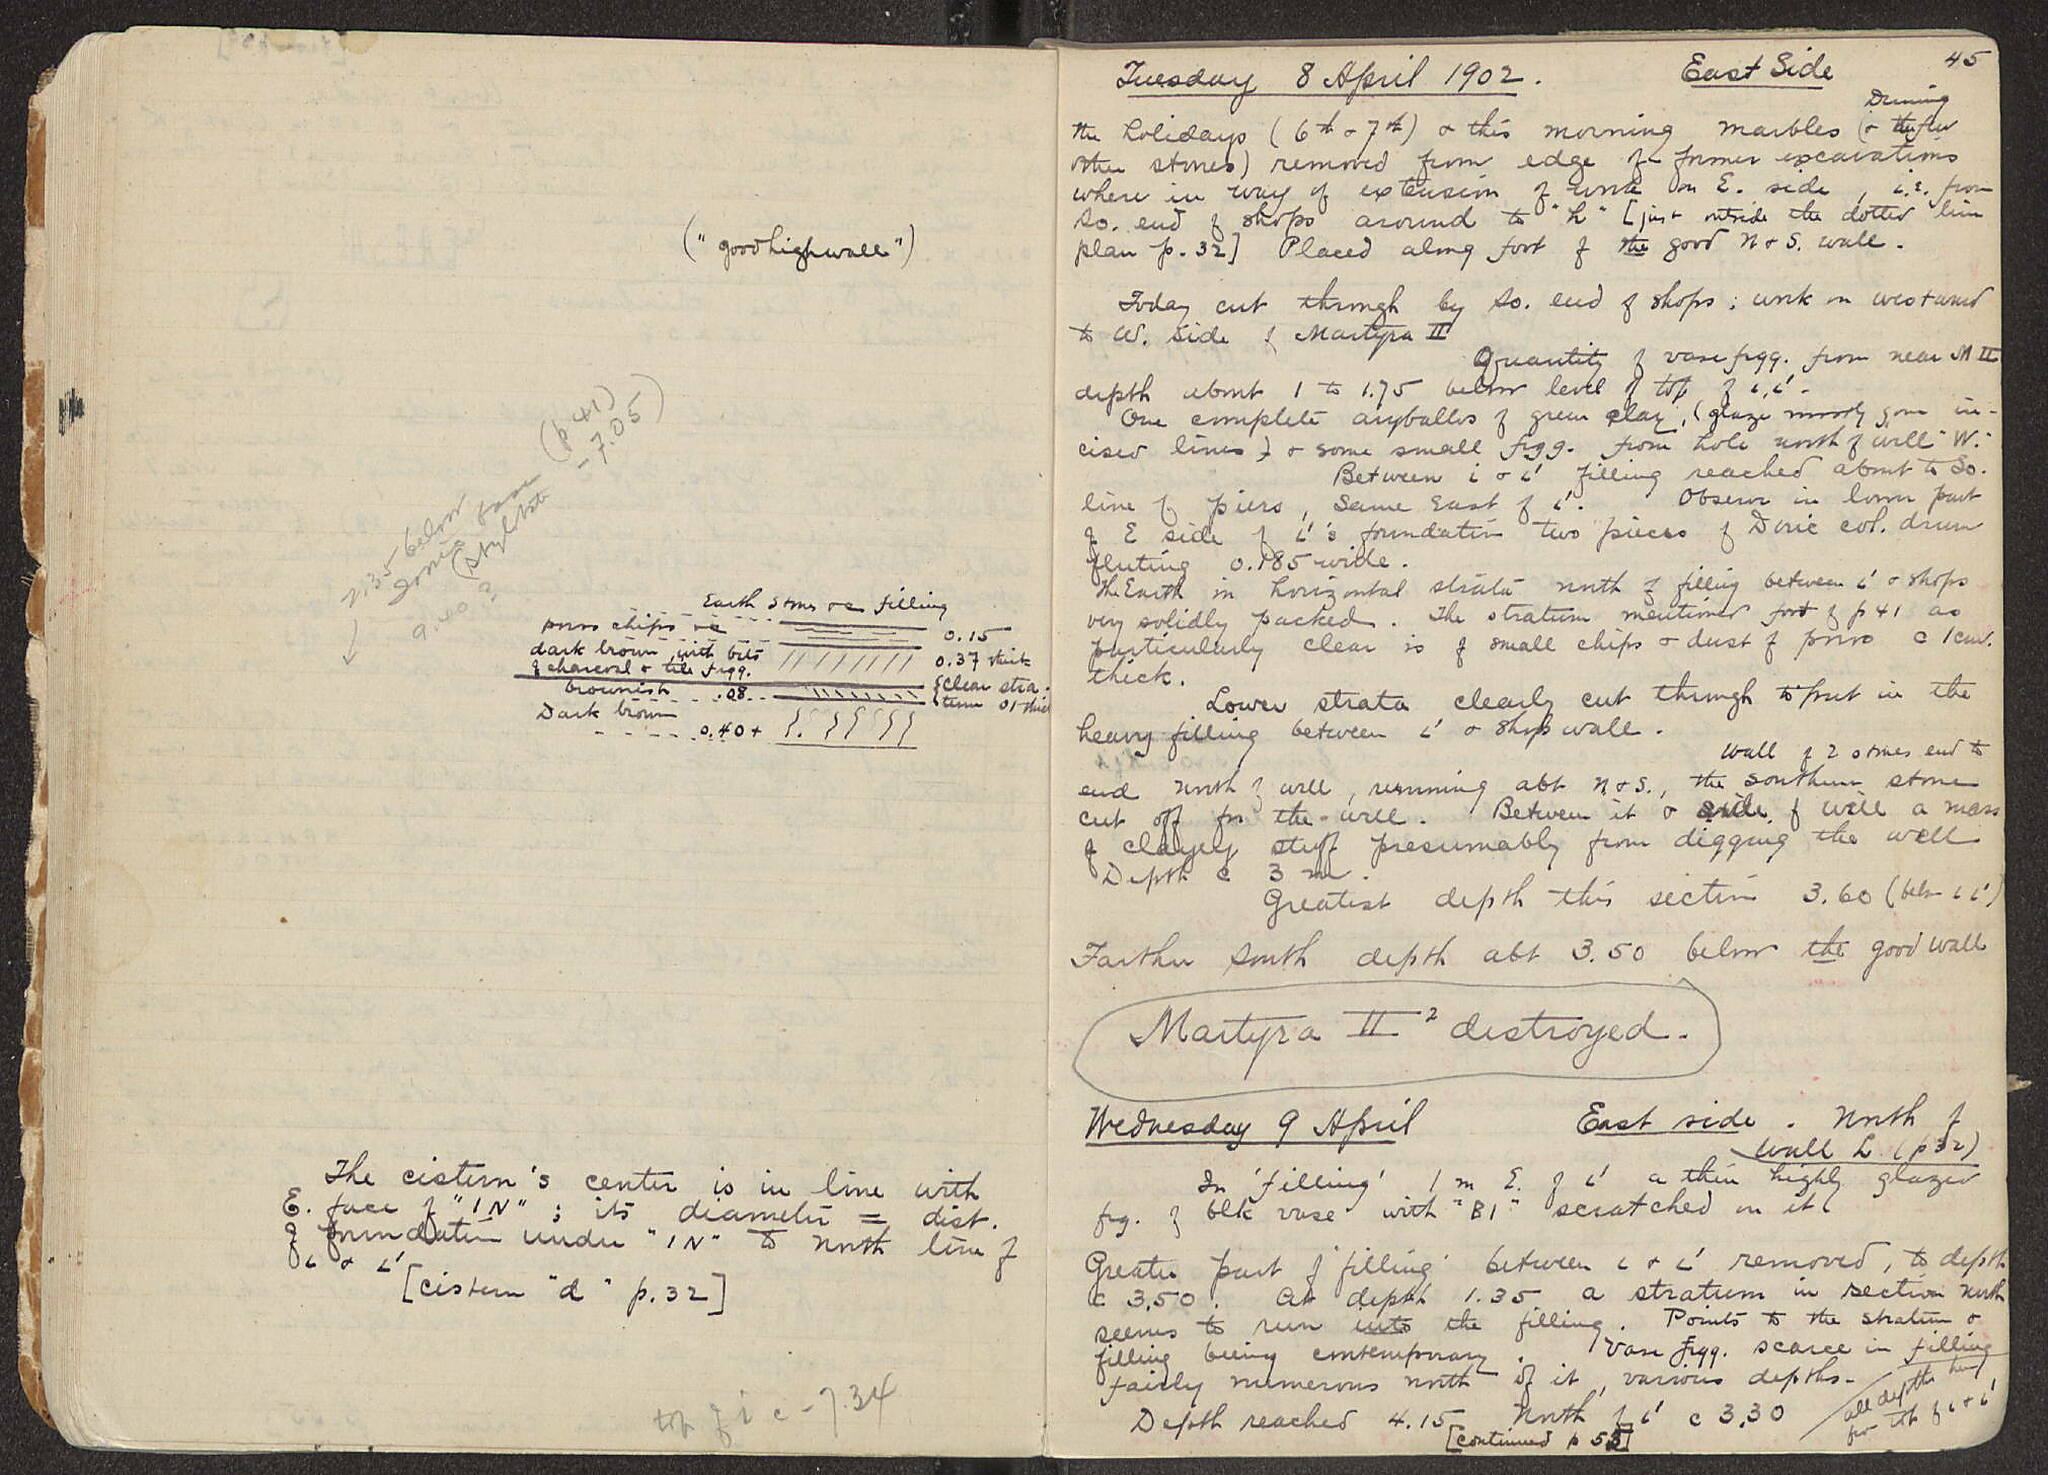 ("good high wall")
(p 41)
- 7.05)
2.35 below
Ionic base
(stylobate
9.40 ?
Earth stones &c filling
poros chips &c
0.15
dark brown, with bits
0.37 thick
of charcoal & tile frgg.
brownish .08
{clear stra-
tum 01 thick
Dark brown
0.40+
The cistern's center is in line with
E. face of "IN"; its diameter = dist.
of foundation under "IN" to north line of
i & i'
[cistern "d" p. 32]
top of i c - 7.34
45
Tuesday 8 April 1902. East Side
During
the holidays (6th & 7th) & this morning marbles (& a few
other stones) removed from edge of former excavations
where in way of extension of work on E. side, i.e. from
So. end of shops around to "h" [just outside the dotted line
plan p. 32] Placed along foot of the good N & S. wall.
Today cut through by So. end of shops; work on westward
to W. side of Martyra II
Quantity of vase frgg. from near M II
depth about 1 to 1.75 below level of top of i, i'.
One complete aryballos of green clay, (glaze mostly gone in-
cised lines) & some small frgg. from hole north of well "W."
Between i & i' filling reached about to So.
line of piers, Same East of i'. Observe in lower part
of E side of i''s foundation two pieces of Doric col. drum
fluting 0.185 wide.
The Earth in horizontal strata north of filling between i' & shops
very solidly packed. The stratum mentioned foot of p 41 as
particularly clear is of small chips & dust of poros c 1 cm.
thick.
Lower strata clearly cut through to put in the
heavy filling between i' & shops wall.
Wall of 2 stones end to
end north of well, running abt N & S., the southern stone
cut off for the well. Between it & side of well a mass
of clayey stuff presumably from digging the well
Depth c 3 m.
Greatest depth this section 3.60 (below i i')
Farther south depth abt 3.50 below the good wall
Martyra II ² destroyed.
Wednesday 9 April East side. North of
wall L (p 32)
In 'filling' 1 m E. of i' a thin highly glazed
frg. of blk vase with "BI" scratched on it
Greater part of 'filling' between i & i' removed, to depth
c 3.50. At depth 1.35 a stratum in section north
seems to run into the filling. Points to the stratum &
filling being contemporary. Vase frgg. scarce in filling
fairly numerous north of it, various depths.
Depth reached 4.15 North of i' c 3.30
all depths here
fro top of i & i'
[continued p 53]